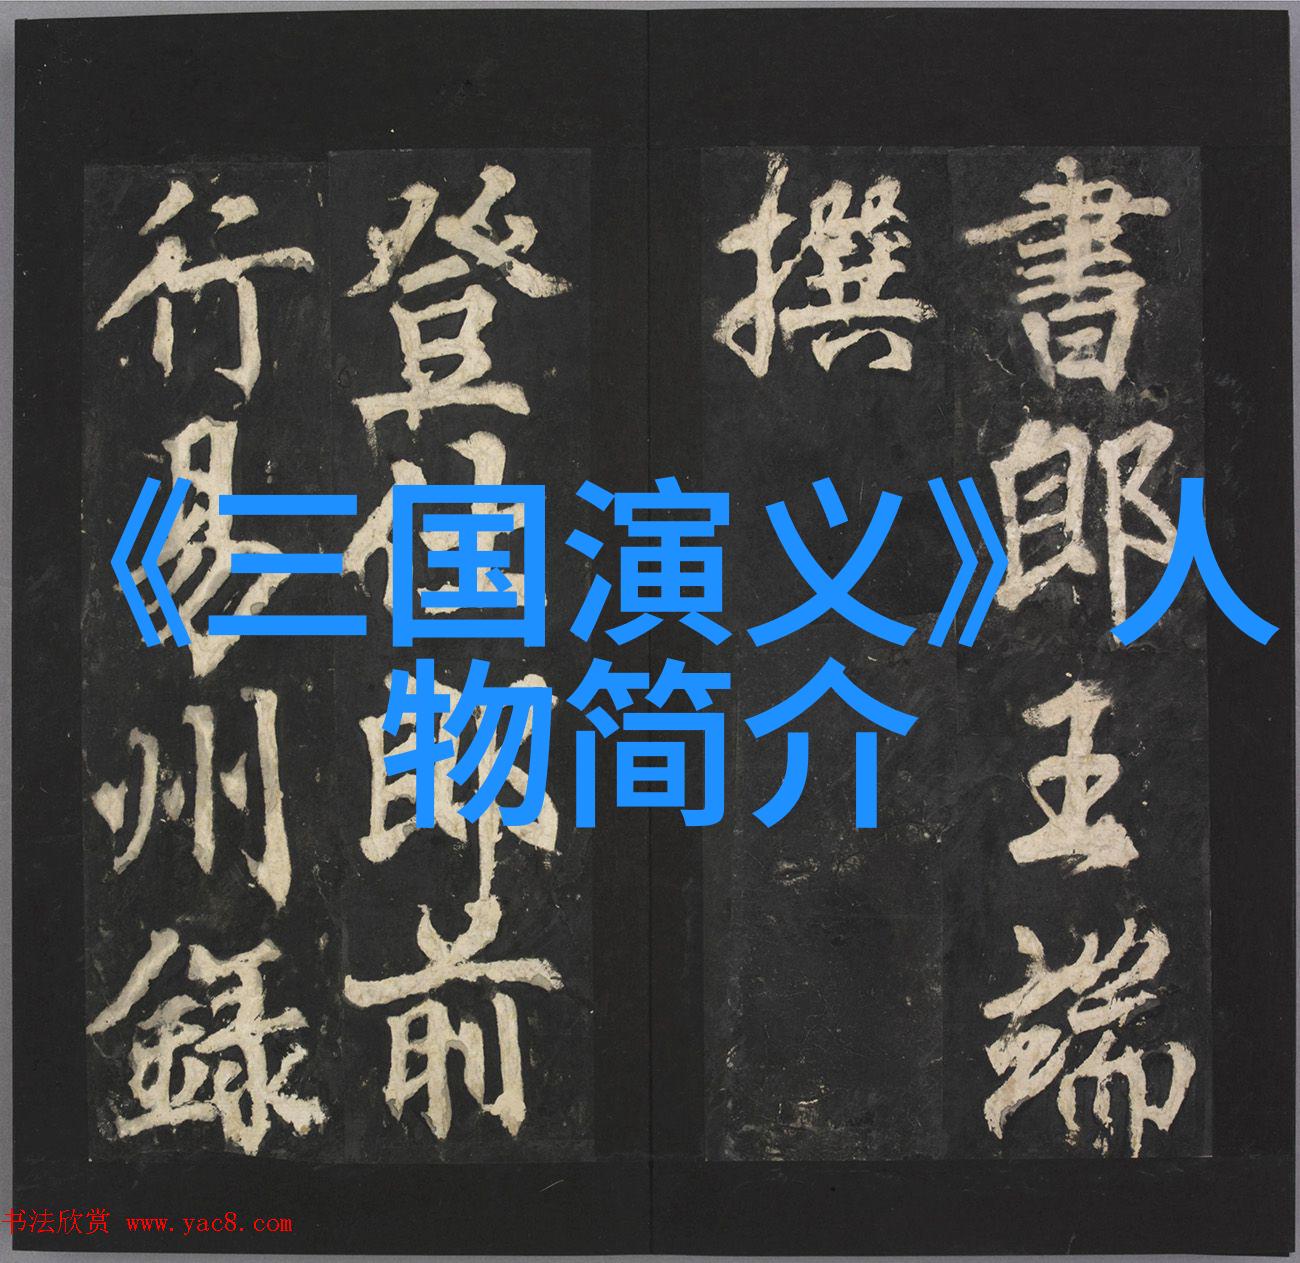 書郎王端
撰
登仕郎前
行易州録
《三国演义》人
物简介
书法欣赏 www.yac8.com